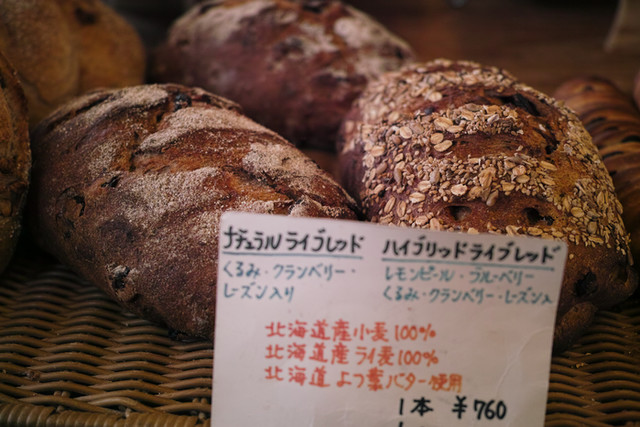 ナチュラルライブレッド
くるみ・クランベリー・
レーズン入り
ハイブリッドライブレッド
レモンピール・ブルーベリー
くるみ・クランベリー・レーズン入
北海道産小麦100%
北海道産ライ麦100%
北海道よつ葉バター使用
1本 ¥760